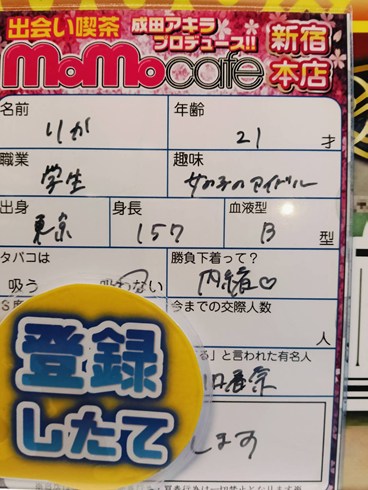 出会い喫茶 成田アキラ
プロデュース!! 新宿
本店
MoMocafe
名前 年齢
りか 21 才
職業 趣味
学生 女の子のアイドル
出身 身長 血液型
東京 157 B 型
タバコは 勝負下着って?
吸う 吸わない 内緒♡
今までの交際人数
人
」と言われた有名人
登録
したて
します